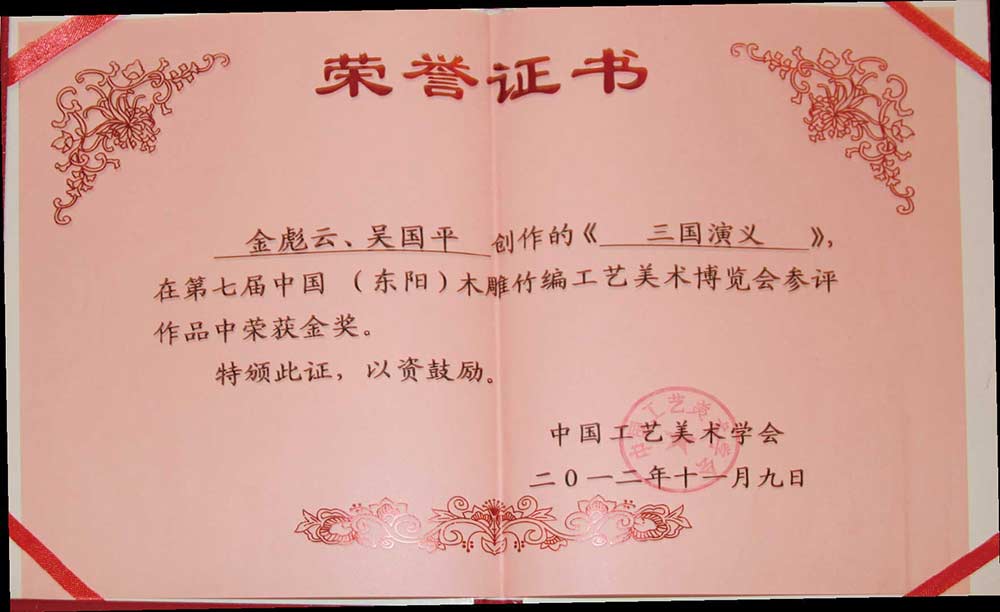 荣誉证书
金彪云、吴国平 创作的《 三国演义 》,
在第七届中国 (东阳)木雕竹编工艺美术博览会参评
作品中荣获金奖。
特颁此证，以资鼓励。
中国工艺美术学会
二〇一二年十一月九日
中国工艺美术学会